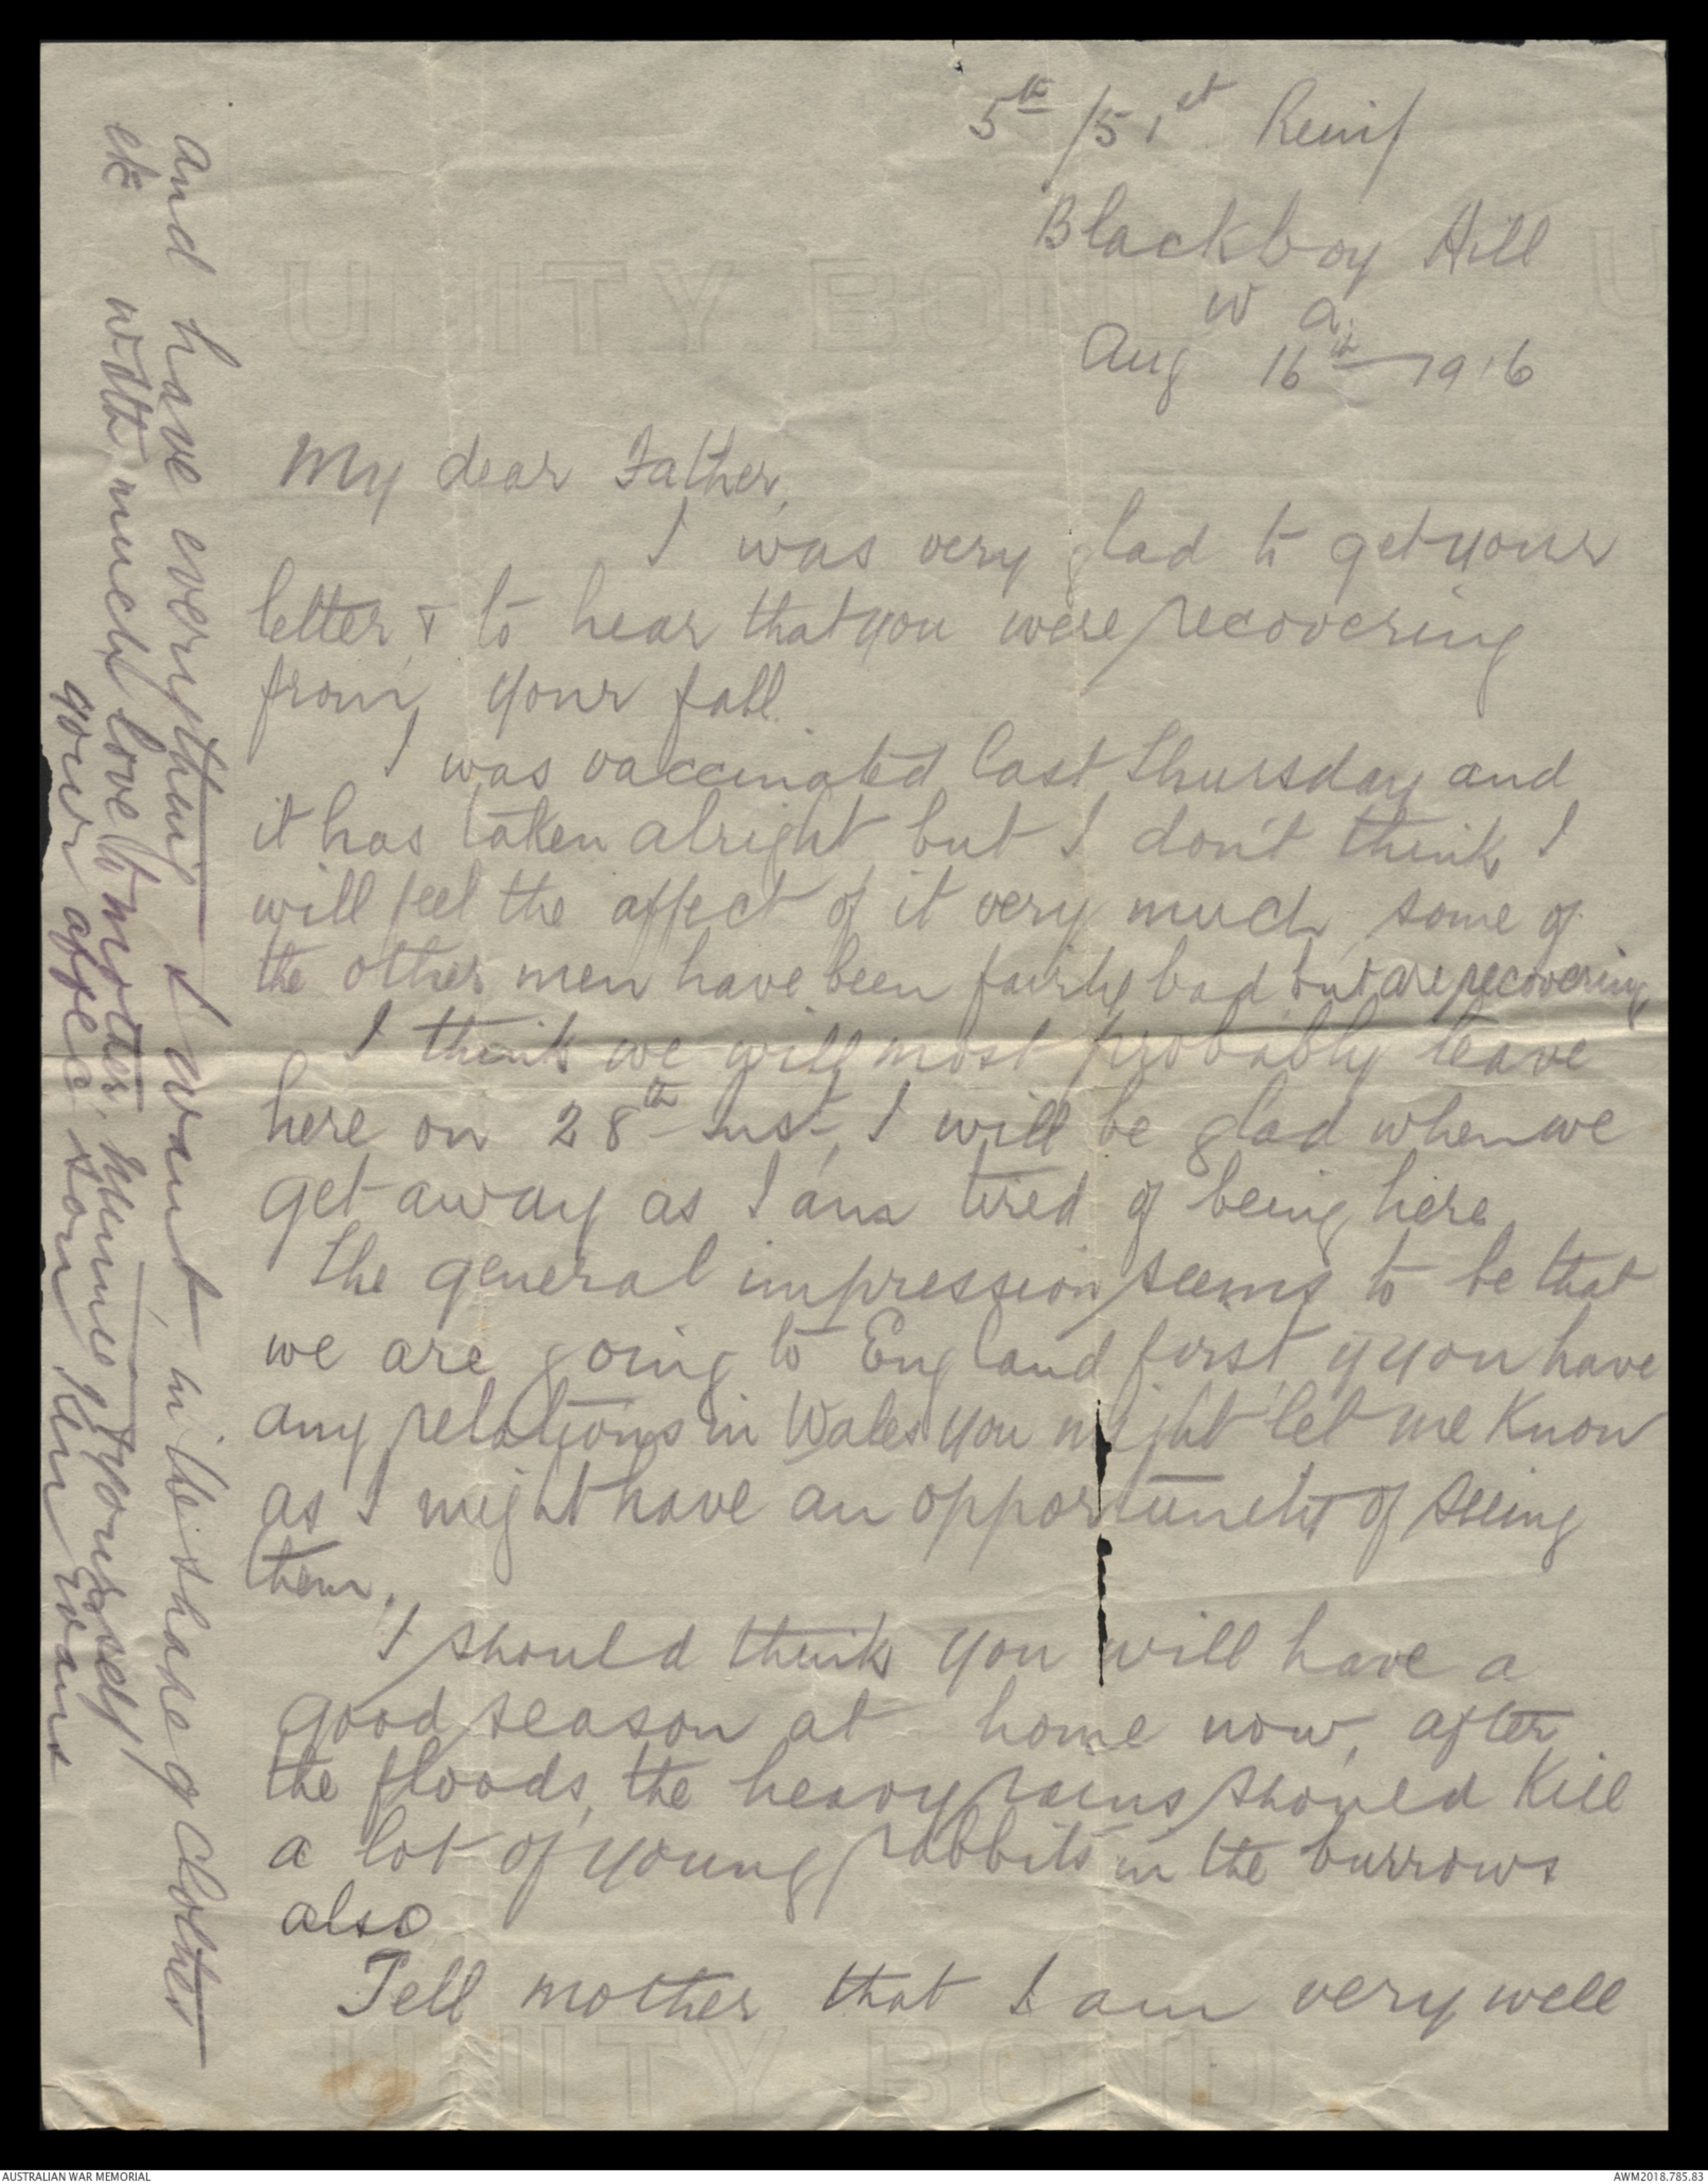 5th/51st Reinf
Blackboy Hill
W a.
Aug 16th 1916
My dear Father,
I was very glad to get your
letter, & to hear that you were recovering
from your fall.
I was vaccinated last Thursday and
it has taken alright but I don't think I
will feel the affect of it very much, some of
the other men have been fairly bad but are recovering
I think we will most probably leave
here on 28th inst, I will be glad when we
get away as I am tired of being here
The general impression seems to be that
we are going to England first, if you have
any relations in Wales you might let me know
as I might have an opportunity of seeing
them.
I should think you will have a
good season at home now, after
the floods, the heavy rains should kill
a lot of young rabbits in the burrows
also
Tell mother that I am very well
and have everything I want, in the shape of clothes
etc with much love to mother, Winnie & yourself
your affec son Ken Evans
UNITY BOND
UNITY BOND
AUSTRALIAN WAR MEMORIAL
AWM2018.785.83